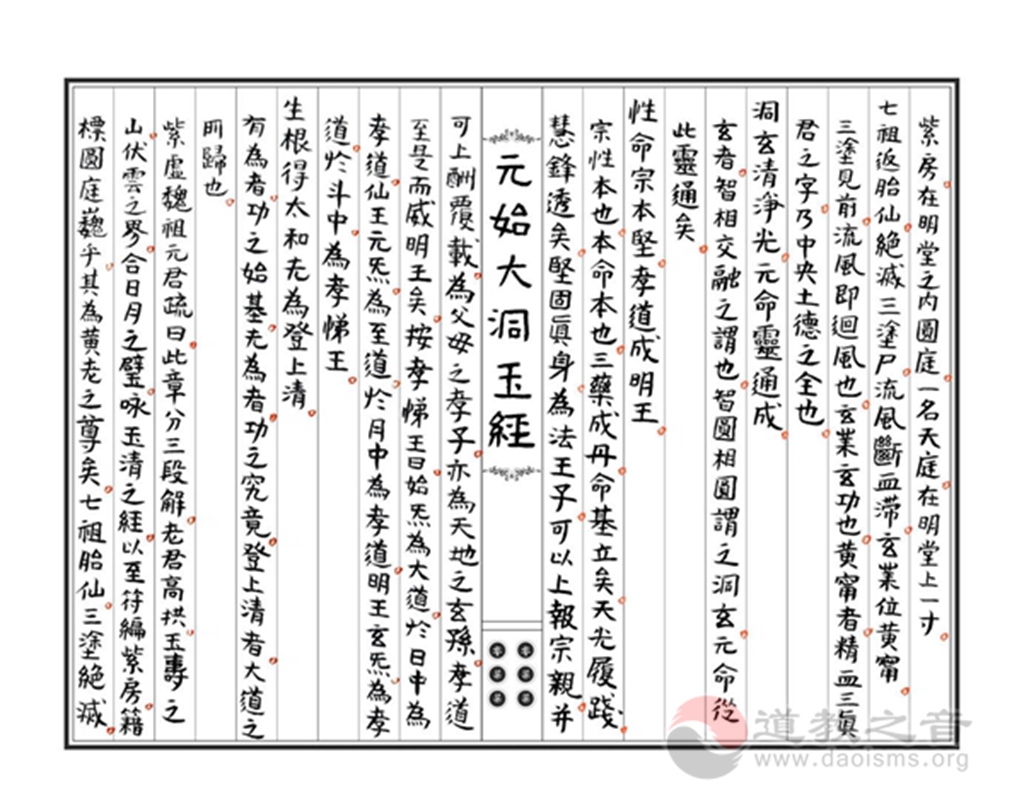 紫房在明堂之内圓庭一名天庭在明堂上一寸
七祖返胎仙絕滅三塗尸流風斷血滞玄業位黃甯
三塗見前流風即迴風也玄業玄功也黃甯者精血三眞
君之字乃中央土德之全也
洞玄清淨光元命靈通成
玄者智相交融之謂也智圓相圓謂之洞玄元命從
此靈通矣
性命宗本堅孝道成明王
宗性本也本命本也三藥成丹命基立矣天光履踐
慧鋒透矣堅固眞身為法王子可以上報宗親并
元始大洞玉經
可上酬覆載為父母之孝子亦為天地之玄孫孝道
至是而威明王矣按孝悌王曰始炁為大道於日中為
孝道仙王元炁為至道於月中為孝道明王玄炁為孝
道於斗中為孝悌王
生根得太和先為登上清
有為者功之始基先為者功之究竟登上清者大道之
所歸也
紫虛魏祖元君疏曰此章分三段解老君高拱玉壽之
山伏雲之界合日月之璧咏玉清之經以至符編紫房籍
標圓庭巍乎其為黃老之尊矣七祖胎仙三塗絕滅
道教之音
www.daoisms.org